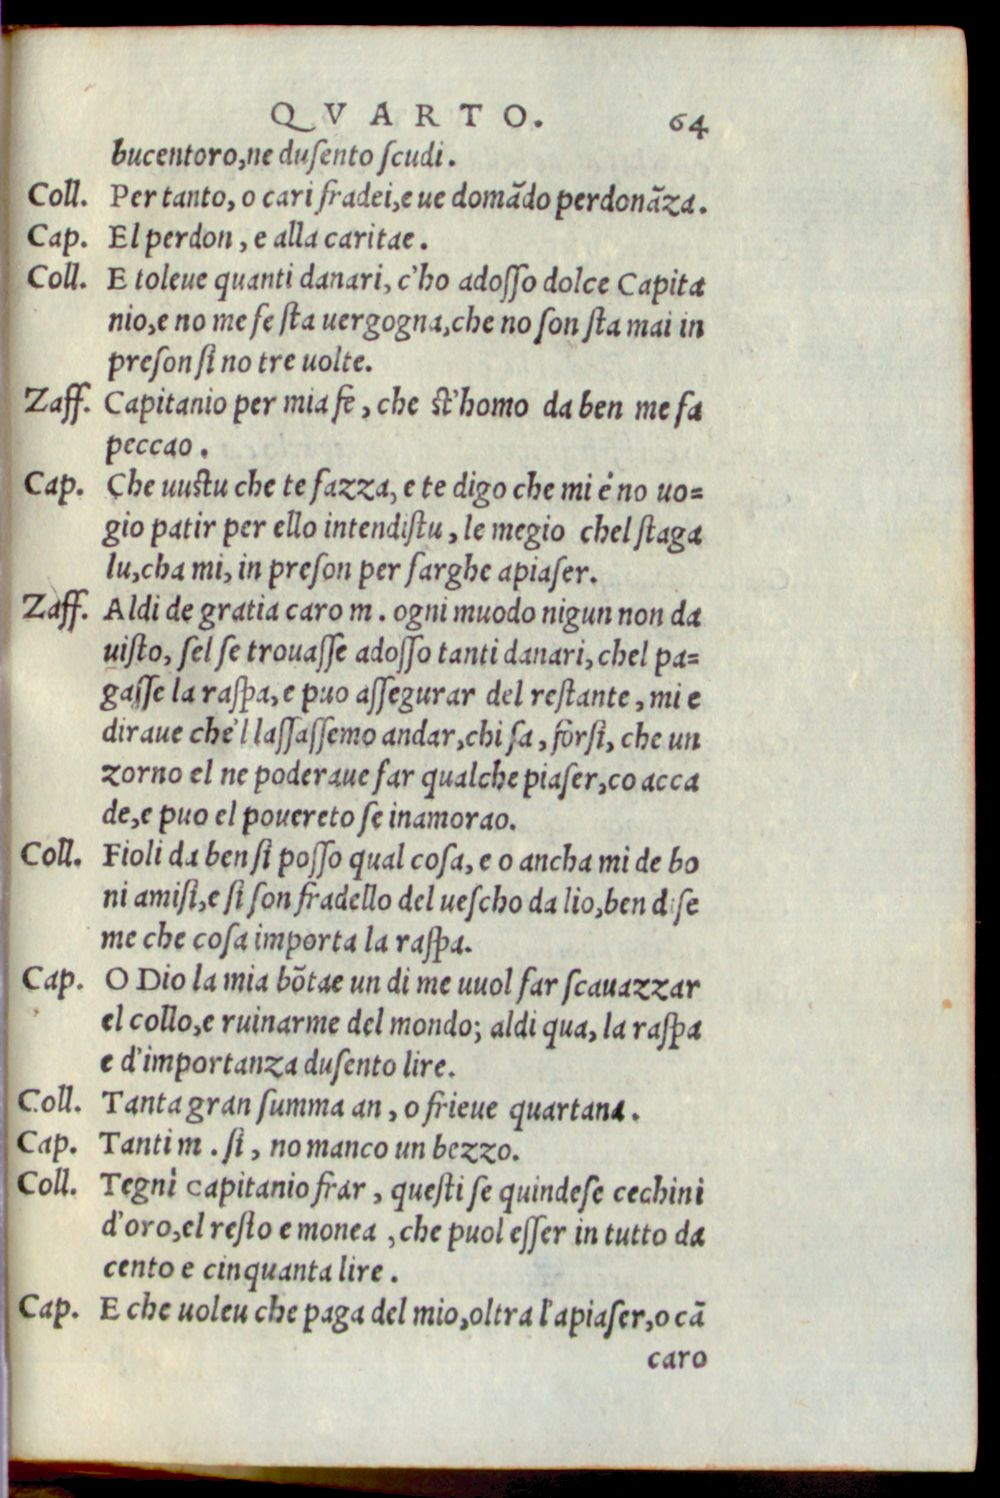 QVARTO. 64
bucentoro,ne duſento ſcudi.
Coll. Per tanto, o cari fradei,e ue domãdo perdonãza.
Cap. El perdon, e alla caritae.
Coll. E toleue quanti danari, c'ho adoſſo dolce Capita
nio,e no me fe ſta uergogna,che no ſon ſta mai in
preſon ſi no tre uolte.
Zaff. Capitanio per mia fe, che ſt'homo da ben me fa
peccao.
Cap. Che uuſtu che te fazza, e te digo che mi è no uo=
gio patir per ello intendiſtu, le megio chel ſtaga
lu,cha mi, in preſon per farghe apiaſer.
Zaff. Aldi de gratia caro m. ogni muodo nigun non da
uiſto, ſel ſe trouaſſe adoſſo tanti danari, chel pa=
gaſſe la raſpa, e puo aſſegurar del reſtante, mi e
diraue che'l laſſaſſemo andar,chi ſa, forſi, che un
zorno el ne poderaue far qualche piaſer,co acca
de,e puo el poucreto ſe inamorao.
Coll. Fioli da ben ſi poſſo qual coſa, e o ancha mi de bo
ni amiſi,e ſi ſon fradello del ueſcho da lio,ben diſe
me che coſa importa la raſpa.
Cap. O Dio la mia bõtae un di me uuol far ſcauazzar
el collo,e ruinarme del mondo; aldi qua, la raſpa
e d'importanza duſento lire.
Coll. Tanta gran ſumma an, o frieue quartana.
Cap. Tanti m. ſi, no manco un bezzo.
Coll. Tegni capitanio frar, queſti ſe quindeſe cechini
d'oro,el reſto e monea, che puol eſſer in tutto da
cento e cinquanta lire.
Cap. E che uoleu che paga del mio,oltra l'apiaſer,o cã
caro